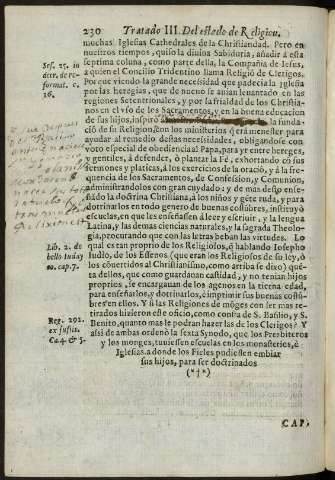 230 Tratado III. Del estado de Religion.
muchas Iglesias Cathedrales de la Christiandad. Pero en
nuestros tiempos, quiso la diuina Sabiduria, añadir à esta
septima coluna, como parte della, la Compañia de Iesus,
a quien el Concilio Tridentino llama Religiō de Clerigos.
Porque viendo la grande necessidad que padecia la Iglesia
por las heregias, que de nueuo se auian leuantado en las
regiones Setentrionales, y por la frialdad de los Christia-
nos en el vso de los Sacramentos, y en la buena educacion
de sus hijos, inspirò
la funda-
ciō de su Religion, con los ministerios q̃ erā menester para
ayudar al remedio destas necessidades, obligandose con
voto especial de obediencia al Papa, para yr entre hereges,
y gentiles, à defender, ò plantar la Fè, exhortando cō sus
sermones y platicas, à los exercicios de la oraciō, y à la fre-
quencia de los Sacramentos, de Confession, y Comunion,
administrandolos con gran cuydado; y de mas desto ense-
ñādo la doctrina Christiana, à los niños y gēte ruda, y para
doctrinarlos en todo genero de buenas costūbres, instituyò
escuelas, en que les enseñassen à leer y escriuir, y la lengua
Latina, y las demas ciencias naturales, y la sagrada Theolo-
gia, procurando que con las letras beban las virtudes. Lo
qual es tan proprio de los Religiosos, q̃ hablando Iosepho
Iudio, de los Essenos (que eran los Religiosos de su ley, ò
los cōuertidos al Christianismo, como arriba se dixo) quē-
ta dellos, que como guardauan castidad, y no tenian hijos
proprios, se encargauan de los agenos en la tierna edad,
para enseñarlos, y doctrinarlos, è imprimir sus buenas costū-
bres en ellos. Y si las Religiones de mōges con ser mas re-
tirados hizieron este oficio, como consta de S. Basilio, y S.
Benito, quanto mas le podran hazer las de los Clerigos? Y
assi de ambas ordenò la sexta Synodo, que los Presbiteros
y los monges, tuuiessen escuelas en los monasterios, è
Iglesias, a donde los Fieles pudiessen embiar
sus hijos, para ser doctrinados
(*†*)
CAP.
Ses. 25. in
decr. de re-
format. c.
16.
Lib. 2. de
bello Iuday
co. cap. 7.
Reg. 292.
ex fusis.
Ca. 4. & 5.